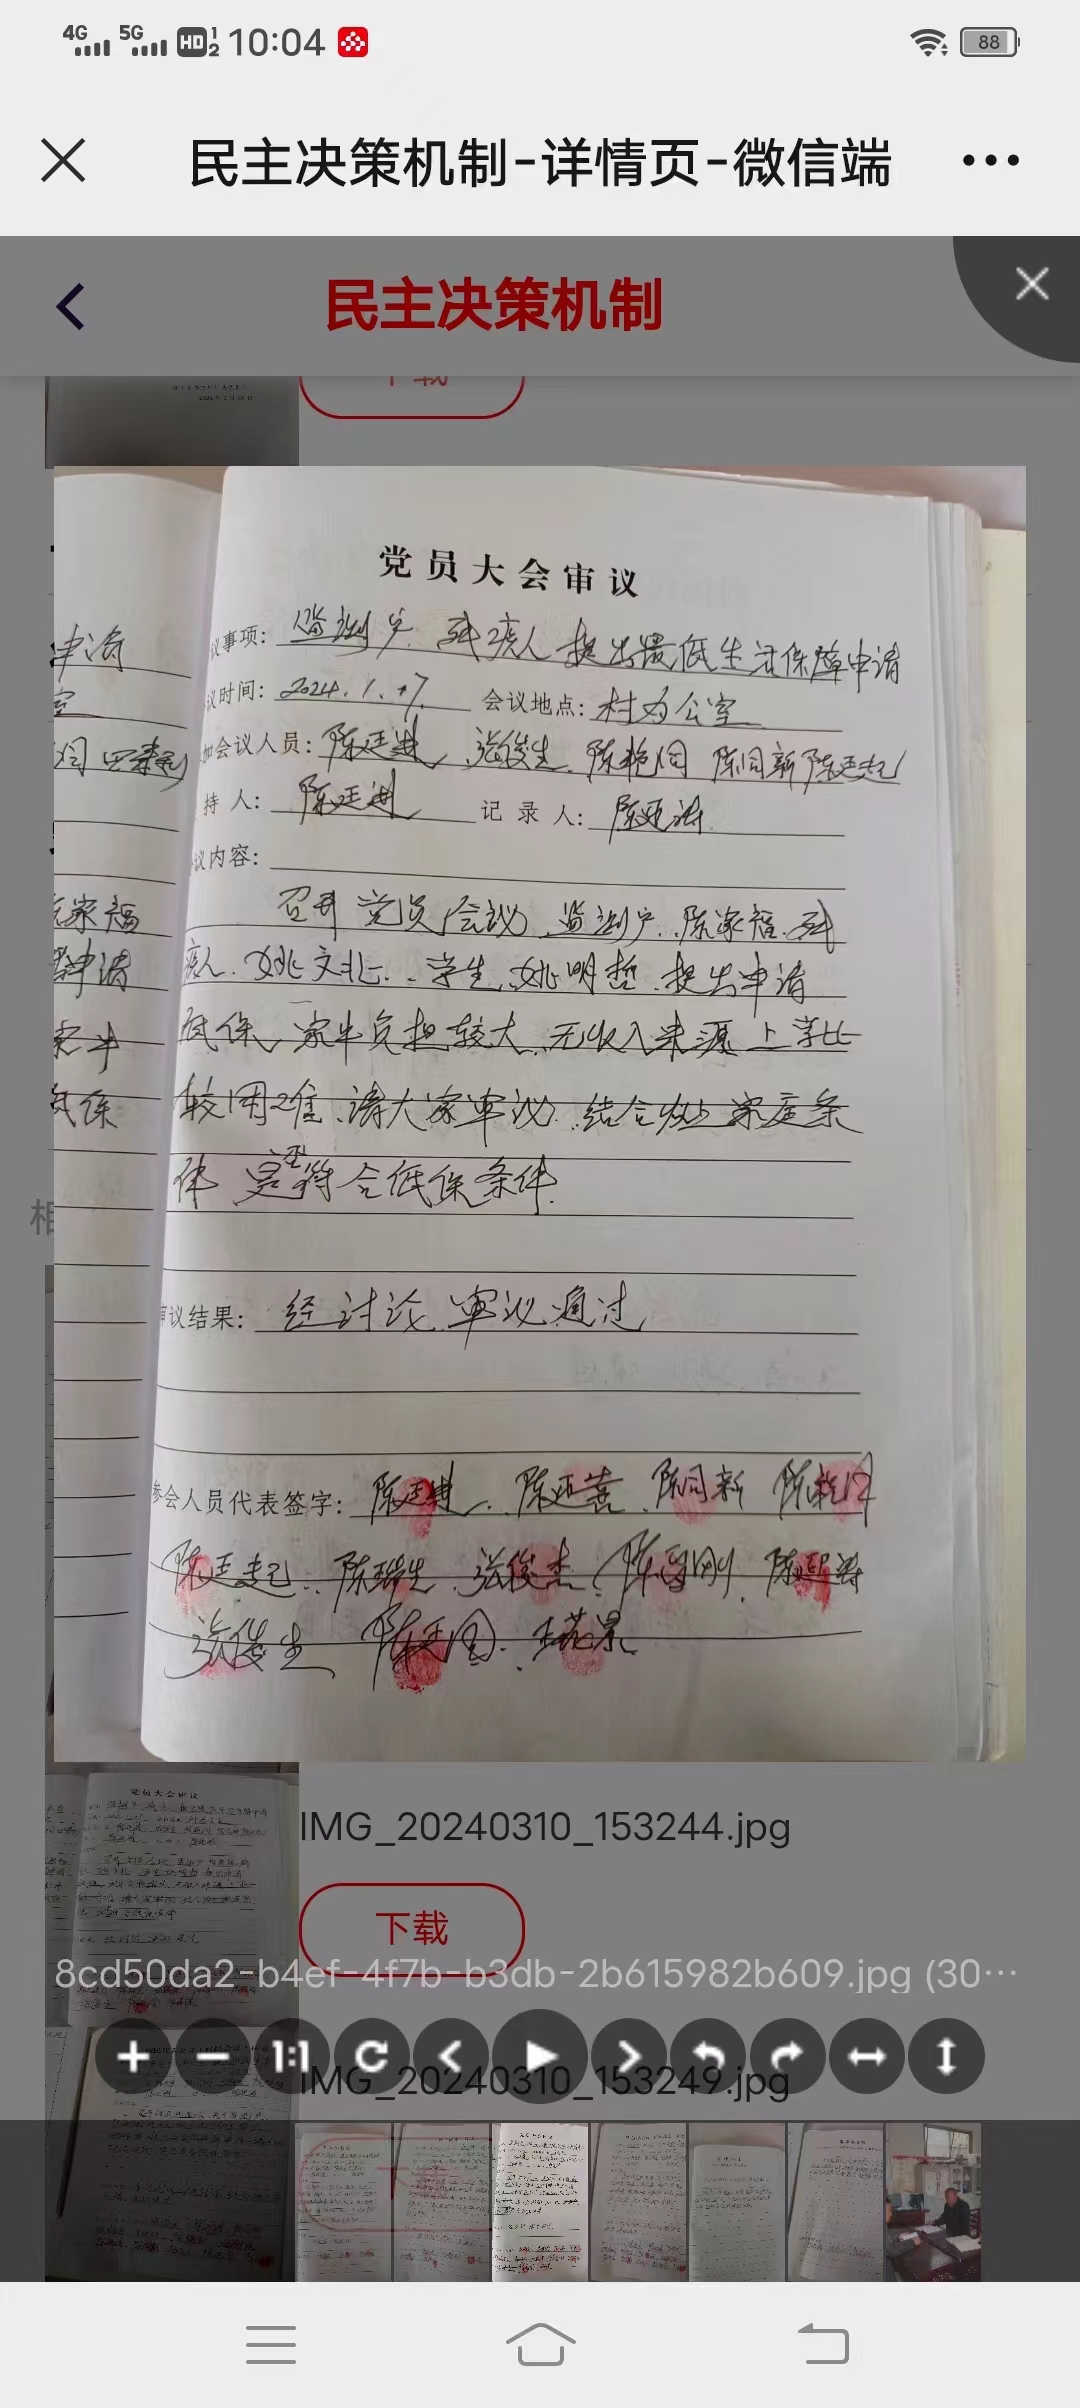 4G 5G HD 1 2 10:04 88
民主决策机制-详情页-微信端
民主决策机制
下载
党员大会审议
议事项: 监测户、残疾人提出最低生活保障申请
议时间: 2024.1.17. 会议地点: 村办公室
加会议人员: 陈廷进、张俊生、陈艳同 陈同新 陈廷起
持人: 陈廷进 记录人: 陈延涛
议内容:
召开党员会议、监测户、陈家福、残
疾人、姚文北、学生、姚明哲、提出申请
低保、家中负担较大、无收入来源、上学比
较困难、请大家审议、结合以上家庭条
件 是否符合低保条件.
审议结果: 经讨论、审议通过
参会人员代表签字: 陈廷进、陈延喜、陈同新
陈廷起、陈瑞生、张俊杰、陈留刚、陈延涛
张俊生
申请
室
家福
申请
IMG_20240310_153244.jpg
下载
8cd50da2-b4ef-4f7b-b3db-2b615982b609.jpg (30…
1:1
IMG_20240310_153249.jpg